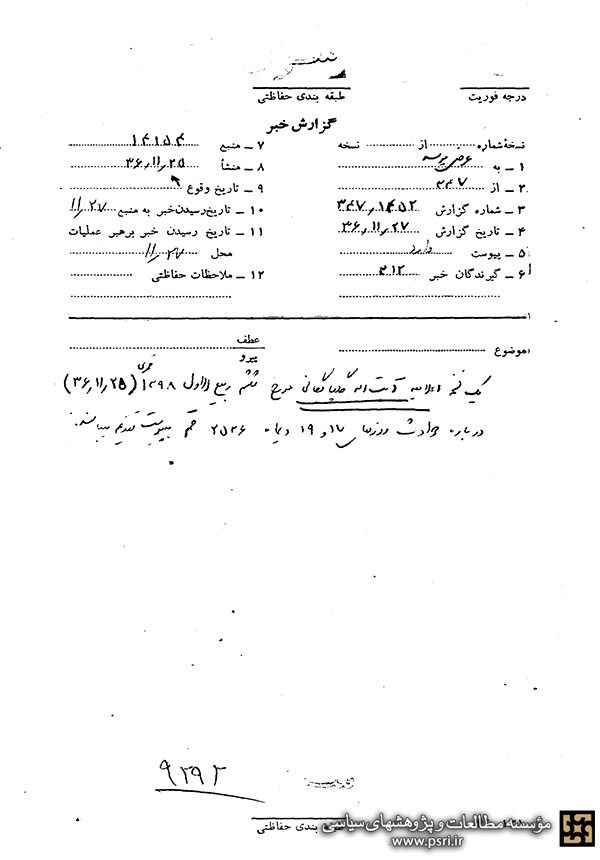 درجه فوریت
طبقه بندی حفاظتی
گزارش خبر
نسخهٔ شماره از نسخه
۱ ـ به
۲ ـ از ۳۴۷
۳ ـ شماره گزارش ۳۴۷٫۱۴۵۲
۴ ـ تاریخ گزارش ۳۶٫۱۱٫۲۷
۵ ـ پیوست دارد
۶ ـ گیرندگان خبر ۳۱۲
۷ ـ منبع ۱۴۱۵۴
۸ ـ منشأ ۳۶٫۱۱٫۲۵
۹ ـ تاریخ وقوع
۱۰ ـ تاریخ رسیدن خبر به منبع ۱۱٫۲۷
۱۱ ـ تاریخ رسیدن خبر برهبر عملیات
محل ۱۱٫۲۷
۱۲ ـ ملاحظات حفاظتی
موضوع:
عطف
پیرو
یک نسخه اعلامیه آیت اله گلپایگانی مورخ ششم ربیع الاول ۱۳۹۸ قمری (۳۶٫۱۱٫۲۵)
درباره حوادث روزهای ۱۷ و ۱۹ دیماه ۲۵۳۶ قم بپیوست تقدیم میباشد.
۹۲۹۲
بندی حفاظتی
مؤسسه مطالعات و پژوهشهای سیاسی
www.psri.ir